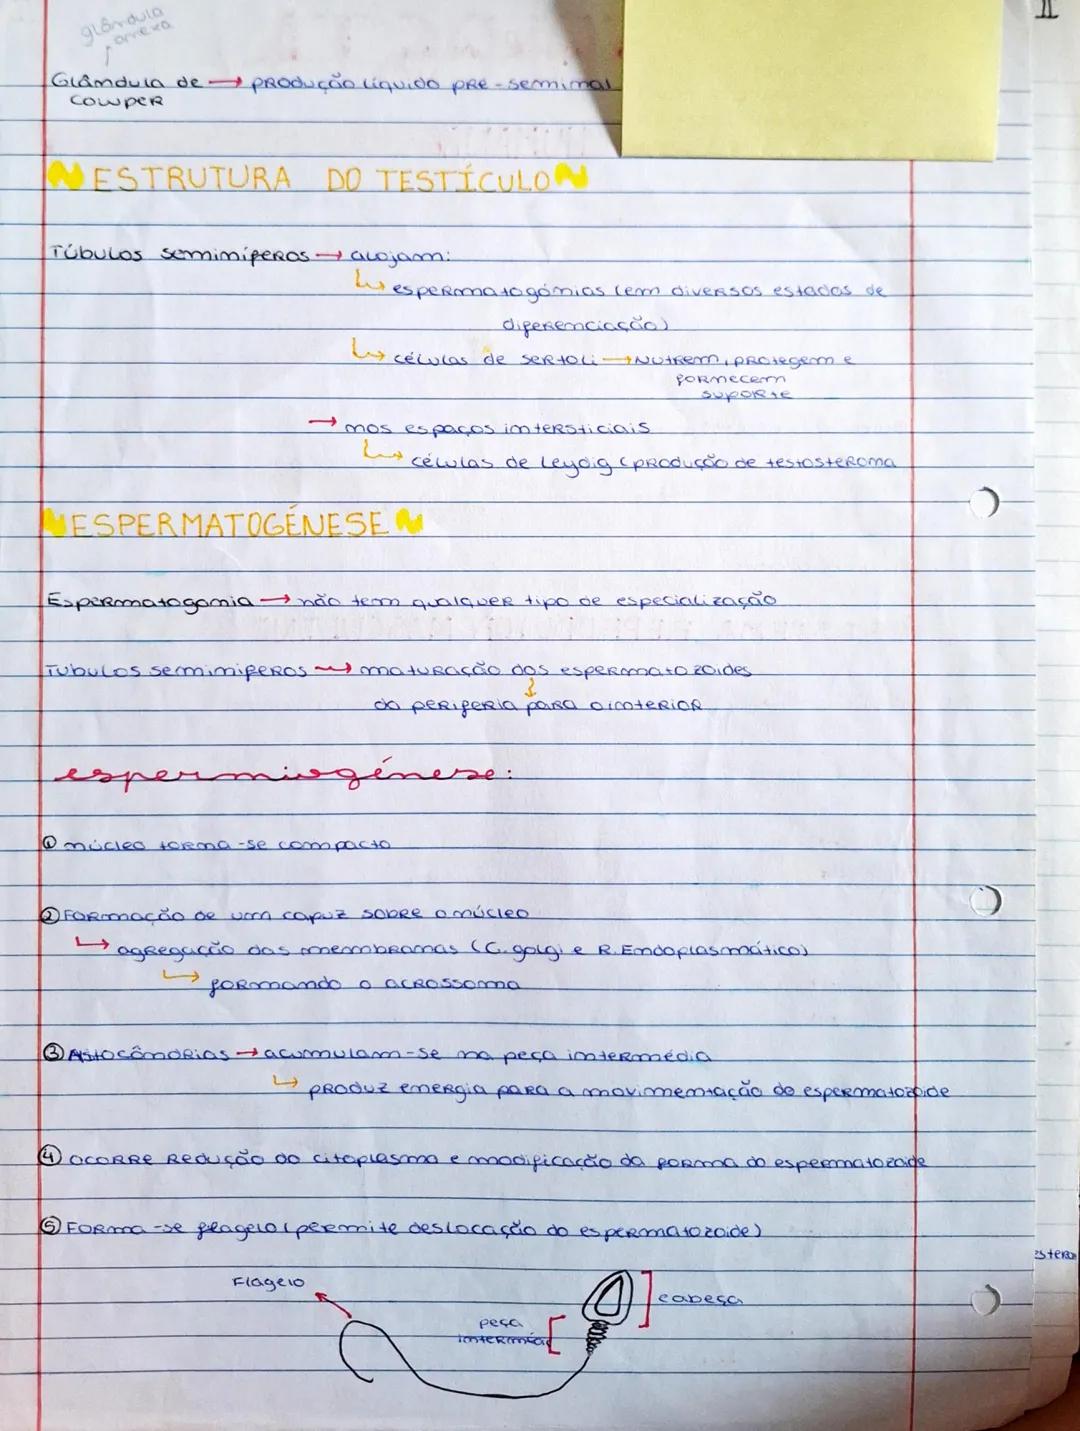 glândula
anexa
Glândula de → produção líquido pré-seminal
Cowper
ESTRUTURA DO TESTÍCULO
Túbulos seminíferos → alojam:
↳ espermatogónias (em diversos estados de
diferenciação)
↳ células de sertoli → Nutrem, protegem e
fornecem
suporte
→ nos espaços intersticiais
↳ células de leydig (produção de testosterona
ESPERMATOGÉNESE
Espermatogonia → não tem qualquer tipo de especialização
Tubulos seminiferos → maturação dos espermatozoides
↓
da periferia para o interior
espermiogénese:
① núcleo torna-se compacto
② Formação de um capuz sobre o núcleo
↳ agregação das membranas (C. golgi e R. Endoplasmático)
↳ formando o acrossoma
③ → acumulam-se na peça intermédia
↳ produz energia para a movimentação do espermatozoide
④ ocorre redução do citoplasma e modificação da forma do espermatozoide
⑤ Forma-se flagelo (permite deslocação do espermatozoide)
Flagelo
cabeça
peça